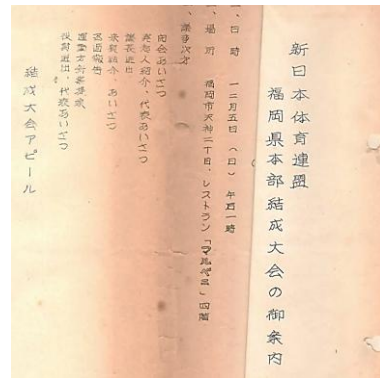 新日本体育連盟
福岡県本部結成大会の御案内
一、日時 一二月五日(日)午后一時
一、場所 福岡市天神二丁目、レストラン「マルベニ」四階
一、議事次第
開会あいさつ
発起人紹介、代表あいさつ
議長選出
来賓紹介、あいさつ
経過報告
運動方針案提案
役員選出、代表あいさつ
結成大会アピール